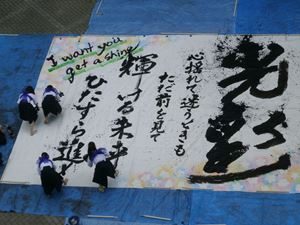 光彩
心揺れて迷うときも
ただ前を見て
輝ける未来
ひたすら進
I want you
get a shine